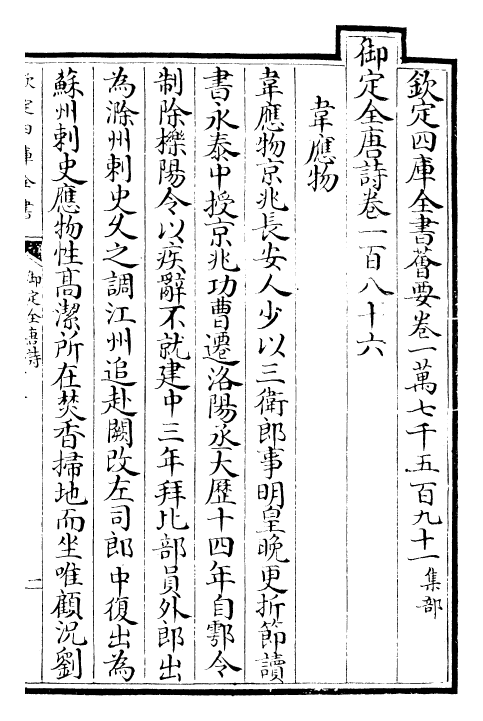 欽定四庫全書薈要卷一萬七千五百九十一集部
御定全唐詩卷一百八十六
韋應物
韋應物京兆長安人少以三衛郎事明皇晚更折節讀
書永泰中授京兆功曹遷洛陽丞大歷十四年自鄠令
制除櫟陽令以疾辭不就建中三年拜比部員外郎出
為滁州刺史久之調江州追赴闕改左司郎中復出為
蘇州刺史應物性高潔所在焚香掃地而坐唯顧況劉
欽定四庫全書
御定全唐詩